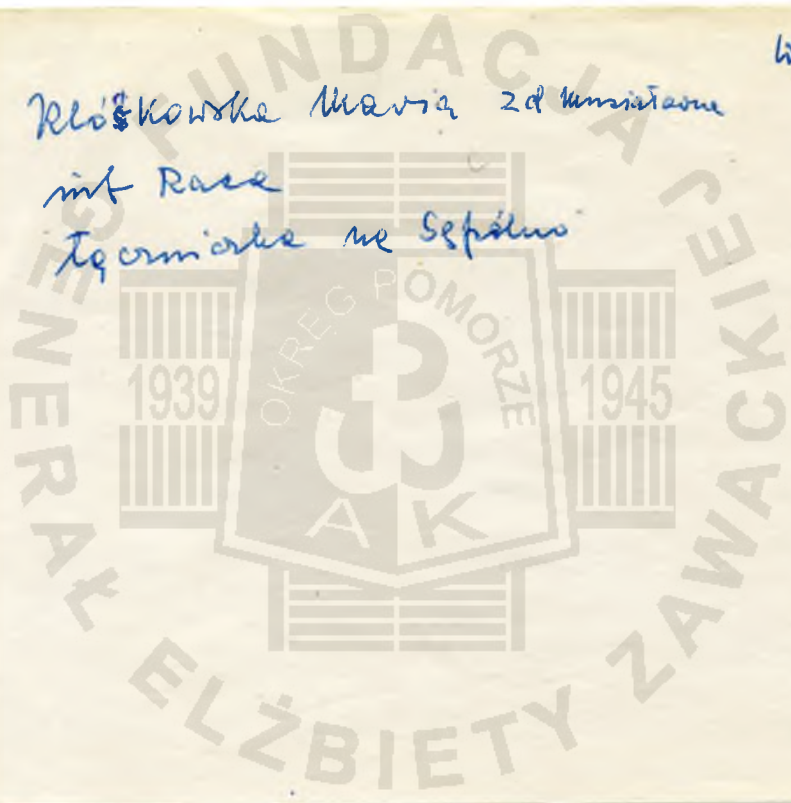 Kłóskowska Maria zd Musiałówna
inf Rasa
Łączniczka na Sępólno
FUNDACJA GENERAŁ ELŻBIETY ZAWACKIEJ
OKRĘG POMORZE
1939 1945
AK